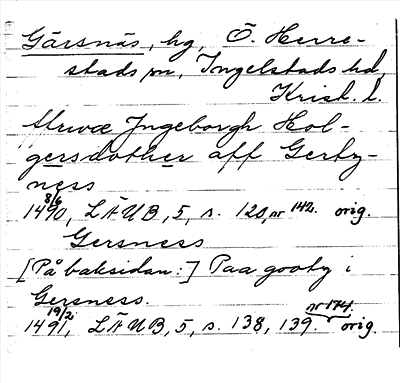 Gärsnäs, hg, Ö. Herre-
stads sn, Ingelstads hd,
Krist. l.
ffrwæ Jngeborgh Hol-
gersdother aff Gerty-
ness
8/6
1490, LÄUB, 5, s. 120, nr 142. orig.
Gersness
[På baksidan:] Paa gooty i
Gersness.
19/2 nr 174.
1491, LÄUB, 5, s. 138, 139. orig.